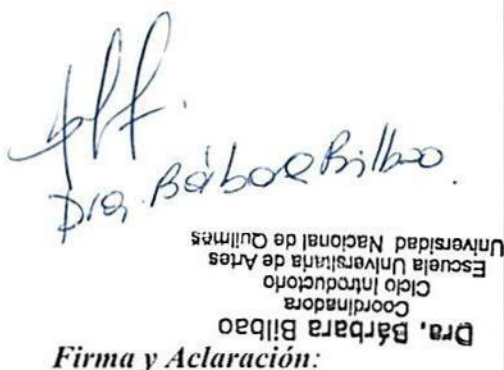 Dra. Bárbara Bilbao.
Dra. Bárbara Bilbao
Coordinadora
Ciclo Introductorio
Escuela Universitaria de Artes
Universidad Nacional de Quilmes
Firma y Aclaración: